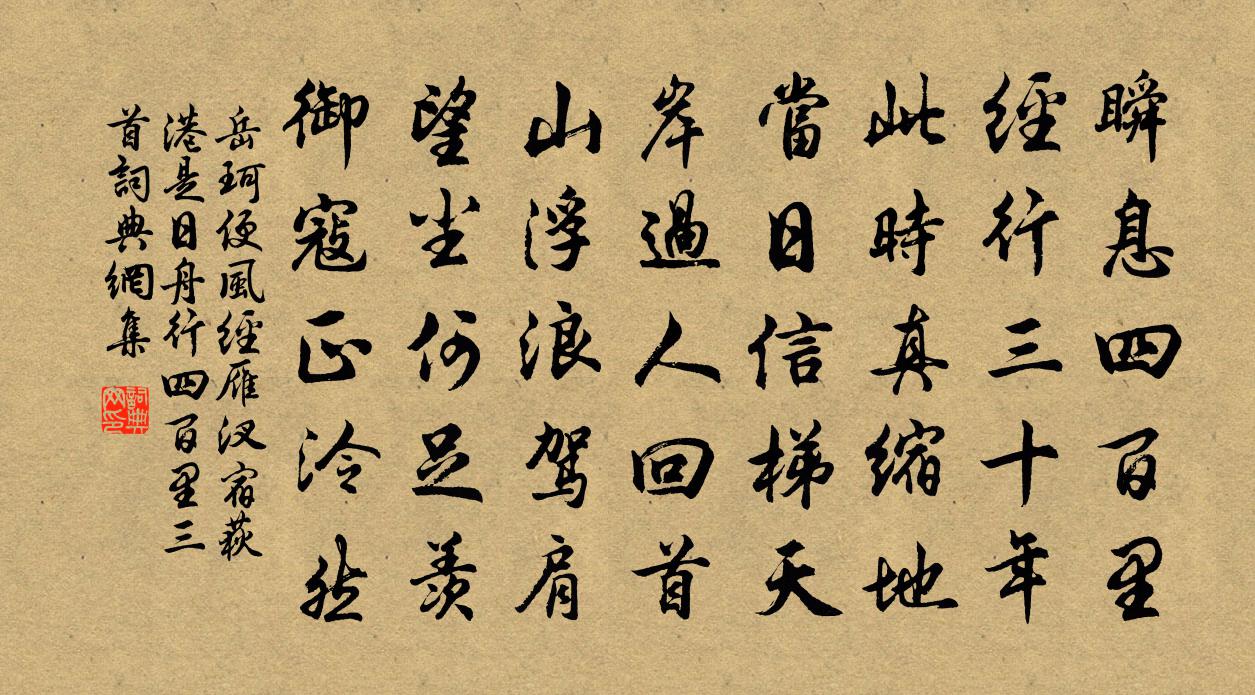 瞬息四百里
經行三十年
此時真縮地
當日信梯天
岸過人回首
山浮浪駕肩
望塵何足羨
御寇正泠然
岳珂便風經雁汊宿萩
港是日舟行四百里三
首詞典網集
詞典網印